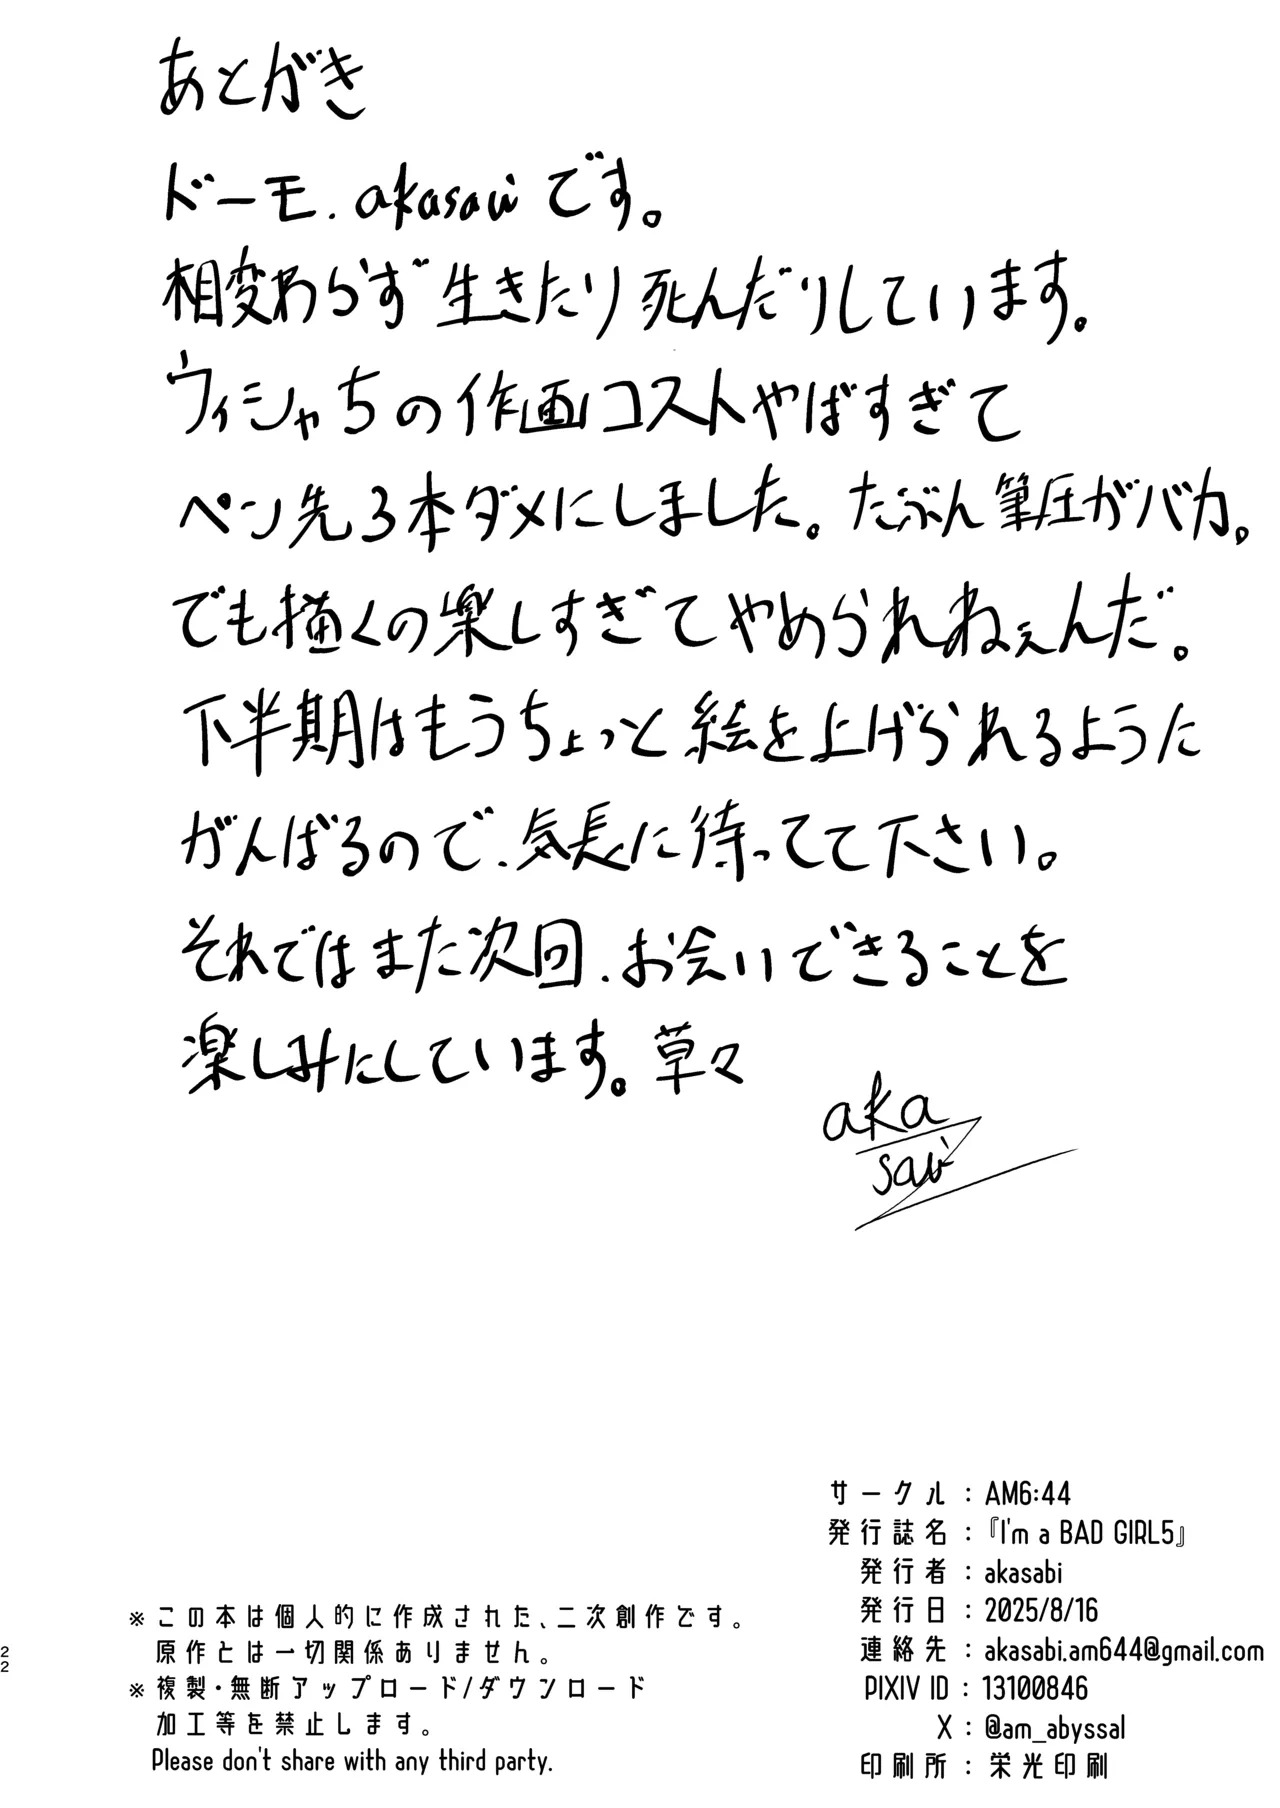 あとがき
ドーモ．akasabiです。
相変わらず生きたり死んだりしています。
ウィシャちの作画コストやばすぎて
ペン先3本ダメにしました。たぶん筆圧がバカ。
でも描くの楽しすぎてやめられねぇんだ。
下半期はもうちょっと絵を上げられるようた
がんばるので、気長に待ってて下さい。
それではまた次回、お会いできることを
楽しみにしています。草々
aka
sabi
サークル：AM6:44
発行誌名：『I'm a BAD GIRL5』
発行者：akasabi
発行日：2025/8/16
連絡先：akasabi.am644@gmail.com
PIXIV ID：13100846
X：@am_abyssal
印刷所：栄光印刷
※この本は個人的に作成された、二次創作です。
原作とは一切関係ありません。
※複製・無断アップロード/ダウンロード
加工等を禁止します。
Please don't share with any third party.
22